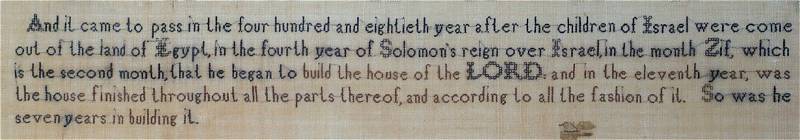 And it came to pass in the four hundred and eightieth year after the children of Israel were come
out of the land of Egypt, in the fourth year of Solomon's reign over Israel, in the month Zif, which
is the second month, that he began to build the house of the LORD. and in the eleventh year, was
the house finished throughout all the parts thereof, and according to all the fashion of it. So was he
seven years in building it.